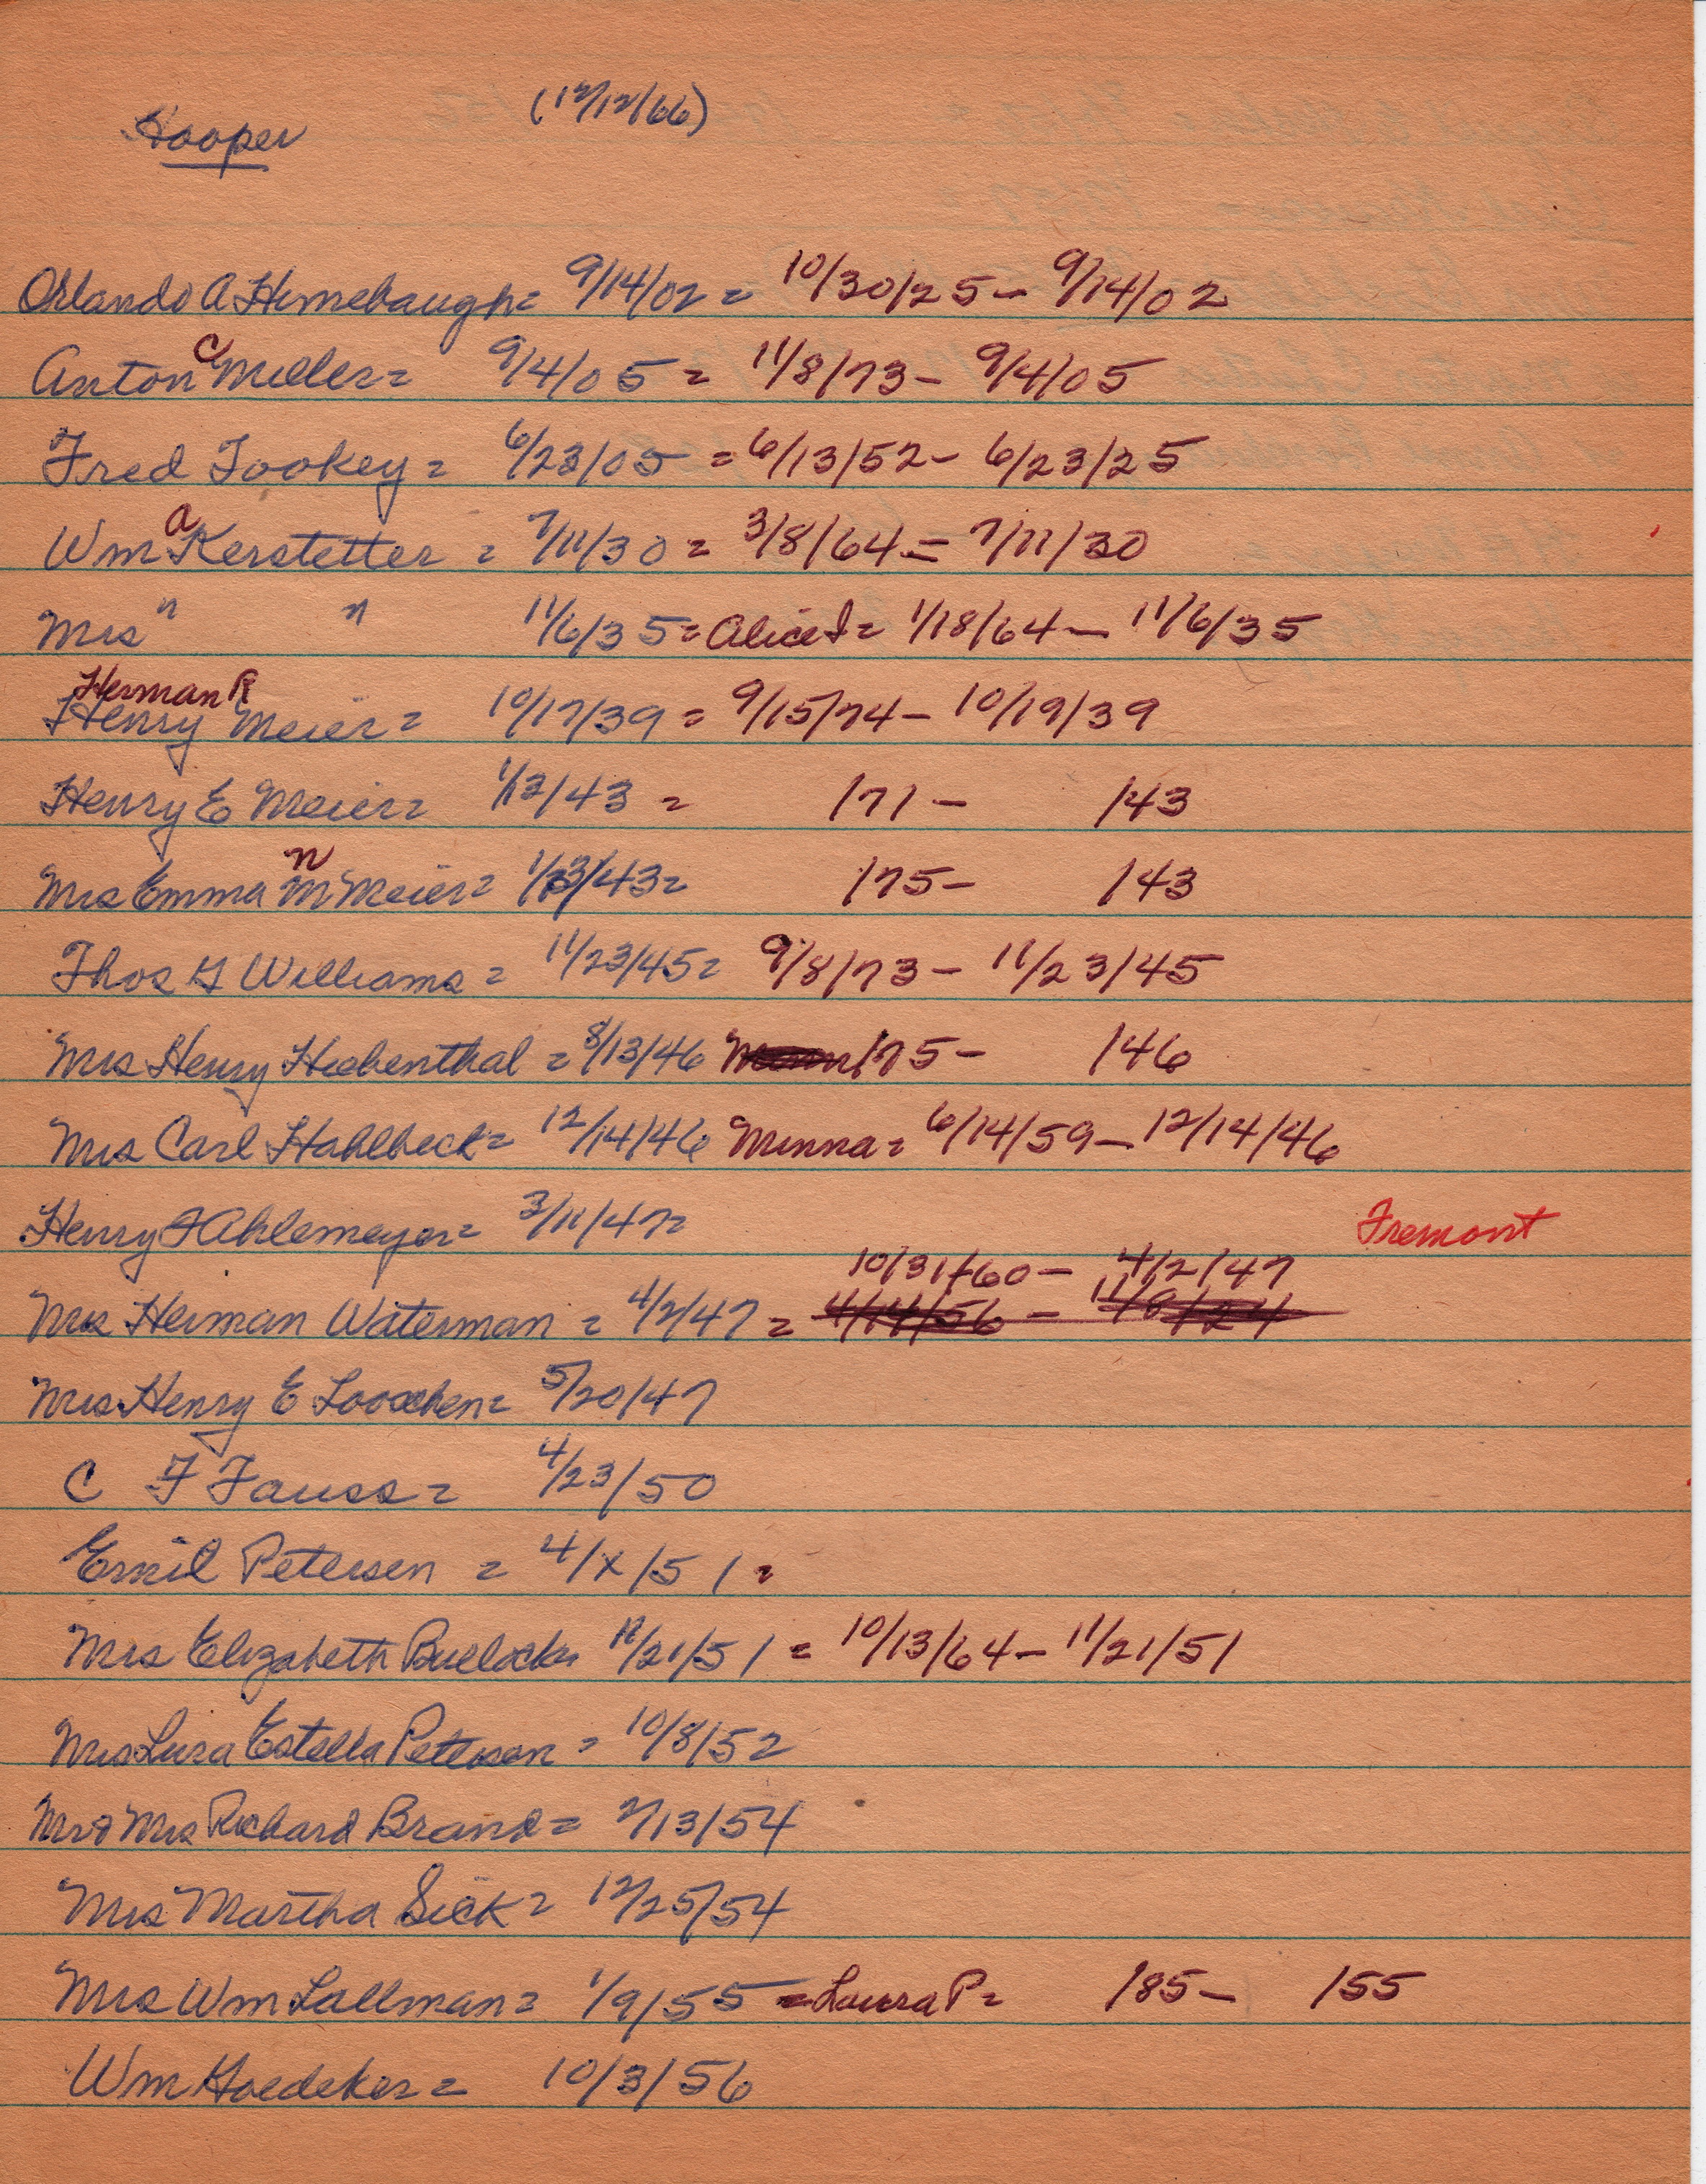 Hooper (12/12/66)
Orlando A Himebaugh = 9/14/02 = 10/30/25 - 9/14/02
Anton C Miller = 9/4/05 = 11/8/73 - 9/4/05
Fred Tookey = 6/23/05 = 6/13/52 - 6/23/25
Wm A Kerstetter = 7/11/30 = 3/8/64 = 7/11/30
Mrs " " 11/6/35 = Alice I = 1/18/64 - 11/6/35
Herman R
Henry Meier = 10/17/39 = 9/15/74 - 10/19/39
Henry E Meier = 1/13/43 = /71 - /43
Mrs Emma M N Meier = /43 = /75 - /43
Thos G Williams = 11/23/45 = 9/8/73 - 11/23/45
Mrs Henry Hiebenthal = 8/13/46 /75 - /46
Mrs Carl Hahlbeck = 12/14/46 Minna = 6/14/59 - 12/14/46
Henry F Ahlemeyer = 3/11/47 = Fremont
10/31/60 - 4/2/47
Mrs Herman Waterman = 4/2/47 = 4/14/56 -
Mrs Henry E Looschen = 5/20/47
C F Fauss = 4/23/50
Emil Petersen = 4/x/51 =
Mrs Elizabeth Bullock = 11/21/51 = 10/13/64 - 11/21/51
Mrs Lura Estella Petersen = 10/8/52
Mr & Mrs Richard Brand = 2/13/54
Mrs Martha Sick = 12/25/54
Mrs Wm Lallman = 1/9/55 = Laura P = /85 - /55
Wm Hoedeker = 10/3/56